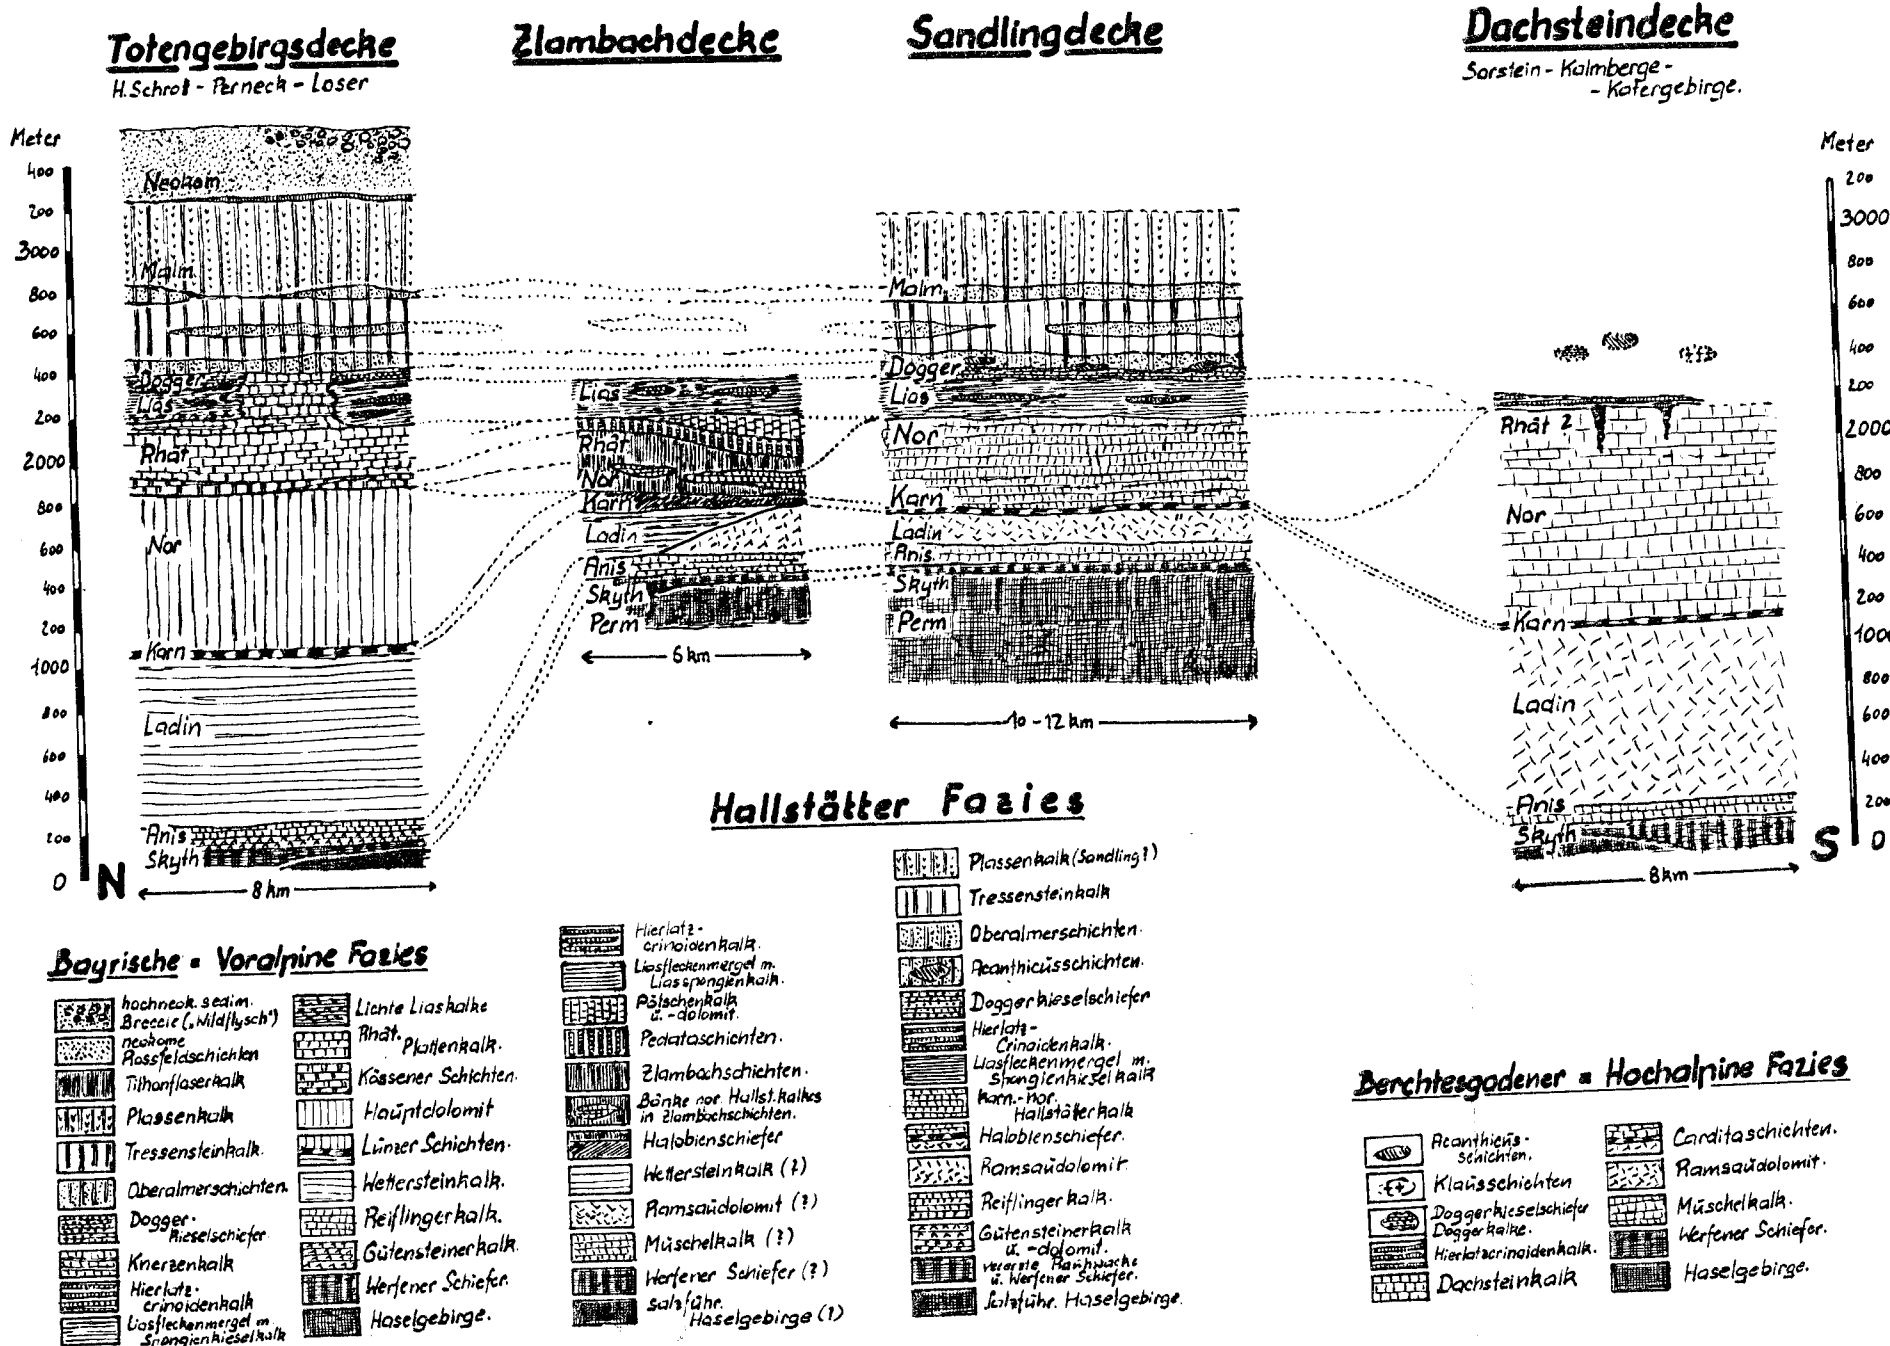 Totengebirgsdecke
H. Schrott - Perneck - Loser
Zlambachdecke
Sandlingdecke
Dachsteindecke
Sarstein - Kalmberge -
- Katergebirge.
Meter
400
200
3000
800
600
400
200
2000
800
600
400
200
1000
800
600
400
200
0
N
Neokom
Malm
Dogger
Lias
Rhät
Nor
Karn
Ladin
Anis
Skyth
8 km
Lias
Rhät
Nor
Karn
Ladin
Anis
Skyth
Perm
6 km
Malm
Dogger
Lias
Nor
Karn
Ladin
Anis
Skyth
Perm
10 - 12 km
Rhät ?
Nor
Karn
Ladin
Anis
Skyth
8 km
S
Meter
200
3000
800
600
400
200
2000
800
600
400
200
1000
800
600
400
200
0
Bayrische = Voralpine Fazies
hochneok. sedim.
Breccie („Wildflysch")
neokome
Rossfeldschichten
Tithonflaserkalk
Plassenkalk
Tressensteinkalk.
Oberalmerschichten.
Dogger-
kieselschiefer
Knerzenkalk
Hierlatz-
crinoidenkalk
Liasfleckenmergel m.
Spongienkieselkalk
Lichte Liaskalke
Rhät.
Plattenkalk.
Kössener Schichten.
Hauptdolomit
Lunzer Schichten.
Wettersteinkalk.
Reiflingerkalk.
Gutensteinerkalk.
Werfener Schiefer.
Haselgebirge.
Hallstätter Fazies
Hierlatz-
crinoidenkalk.
Liasfleckenmergel m.
Liasspongienkalk.
Pötschenkalk
u. -dolomit.
Pedataschichten.
Zlambachschichten.
Bänke nor. Hallst. kalkes
in Zlambachschichten.
Halobienschiefer
Wettersteinkalk (?)
Ramsaudolomit (?)
Muschelkalk (?)
Werfener Schiefer (?)
Salzführ.
Haselgebirge (?)
Plassenkalk (Sandling?)
Tressensteinkalk
Oberalmerschichten.
Acanthicusschichten.
Doggerkieselschiefer
Hierlatz-
Crinoidenkalk.
Liasfleckenmergel m.
Spongienkieselkalk
Karn.-nor.
Hallstätterkalk
Halobienschiefer.
Ramsaudolomit
Reiflingerkalk.
Gutensteinerkalk
u. -dolomit.
vererzte Rauhwacke
u. Werfener Schiefer.
Salzführ. Haselgebirge.
Berchtesgadener = Hochalpine Fazies
Acanthicus-
schichten.
Klausschichten
Doggerkieselschiefer
Doggerkalke.
Hierlatzcrinoidenkalk.
Dachsteinkalk
Carditaschichten.
Ramsaudolomit.
Muschelkalk.
Werfener Schiefer.
Haselgebirge.